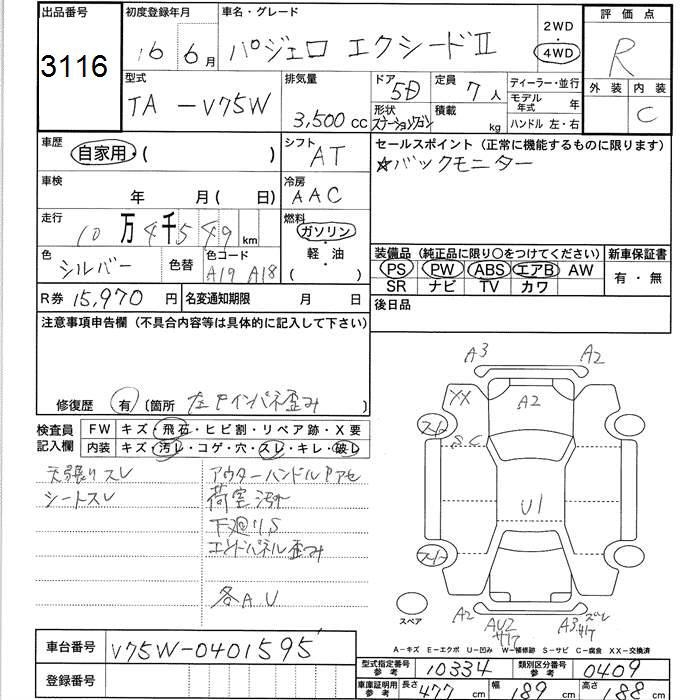 出品番号 初度登録年月 車名・グレード 2WD 評価点
3116 16 6月 パジェロ エクシードⅡ 4WD R
型式 排気量 ドア 5D 定員 7人 ディーラー・並行 外装 内装
TA-V75W 3,500cc 形状 ステーションワゴン 積載 kg モデル年式 年 C
ハンドル 左・右
車歴 自家用・( ) シフト AT セールスポイント(正常に機能するものに限ります)
☆バックモニター
車検 年 月( 日) 冷房 AAC
走行 10万4千549km 燃料 ガソリン・軽油( )
色 シルバー 色替 色コード A19 A18
装備品(純正品に限り○をつけてください) 新車保証書
PS PW ABS エアB AW 有・無
SR ナビ TV カワ
R券 15,970円 名変通知期限 月 日 後日品
注意事項申告欄(不具合内容等は具体的に記入して下さい)
修復歴 有 〔箇所 左 インパネ歪み 〕
検査員記入欄 FW キズ・飛石・ヒビ割・リペア跡・X要
内装 キズ・汚レ・コゲ・穴・スレ・キレ・破レ
天張りスレ アウターハンドル アセ
シートスレ 荷室汚れ
下廻りS
エンドパネル歪み
各A.U
A3 A2
XX A2
S.C
U1
スペア A2 AU2 サケ A3 サケ ズレ
A-キズ E-エクボ U-凹み W-補修跡 S-サビ C-腐食 XX-交換済
車台番号 V75W-0401595
登録番号
型式指定番号 参考 10334 類別区分番号 参考 0409
車庫証明用 参考 長さ 477cm 幅 189cm 高さ 188cm